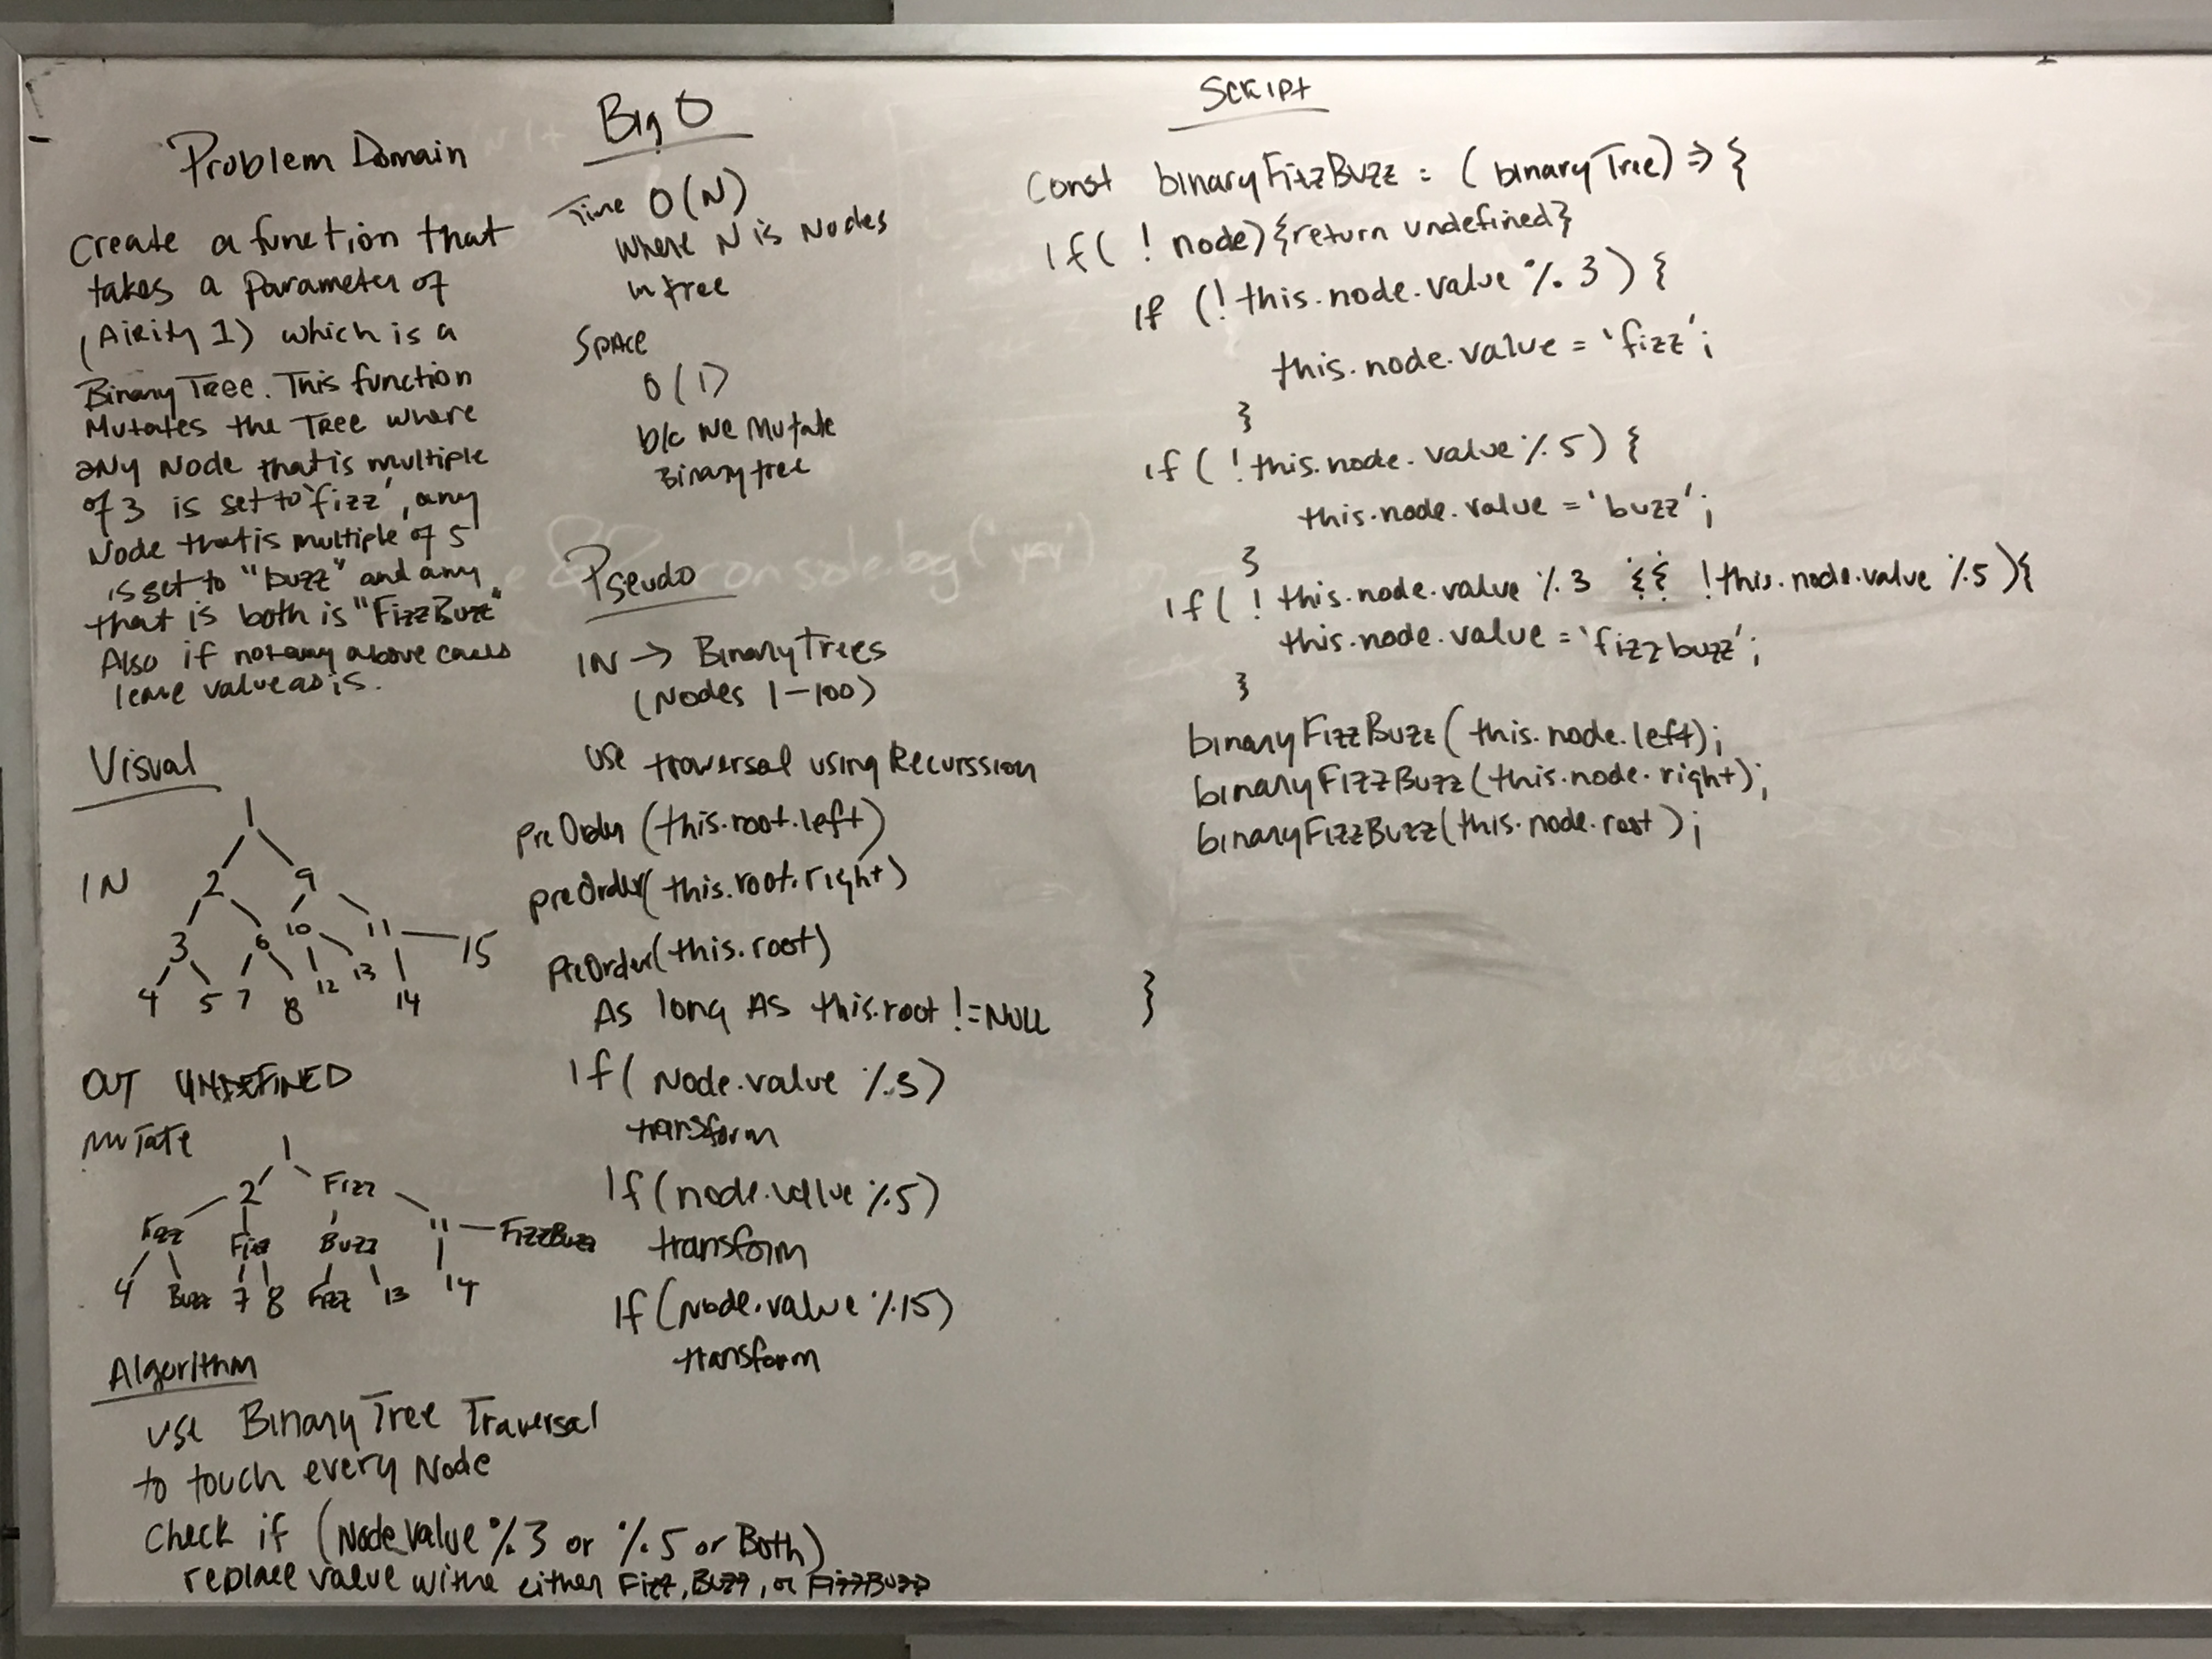 Problem Domain
Create a function that
takes a parameter of
(Airity 1) which is a
Binary Tree. This function
Mutates the Tree where
any Node that is multiple
of 3 is set to 'fizz', any
Node that is multiple of 5
is set to "buzz" and any
that is both is "FizzBuzz"
Also if not any above cases
leave value as is.
Visual
IN
1
2 9
3 6 10 11 15
4 5 7 8 12 13 14
OUT UNDEFINED
MuTaTe
1
2 Fizz
Fizz Fizz Buzz 11 FizzBuzz
4 Buzz 7 8 Fizz 13 14
Algorithm
Use Binary Tree Traversal
to touch every Node
Check if (Node.value % 3 or % 5 or Both)
replace value withe either Fizz, Buzz, or FizzBuzz
Big O
Time O(N)
Where N is Nodes
in tree
Space
O(1)
b/c we Mutate
Binary tree
Pseudo
IN → Binary Trees
(Nodes 1-100)
Use traversal using Recurssion
PreOrder (this.root.left)
preOrder(this.root.right)
PreOrder(this.root)
As long As this.root != NULL
If( Node.value % 3)
transform
If (node.value % 5)
transform
If (Node.value % 15)
transform
Script
Const binaryFizzBuzz = (binaryTree) => {
If( ! node) {return undefined}
If (! this.node.value % 3) {
this.node.value = 'fizz';
}
if ( ! this.node.value % 5) {
this.node.value = 'buzz';
}
If( ! this.node.value % 3 && !this.node.value % 5){
this.node.value = 'fizzbuzz';
}
binaryFizzBuzz( this.node.left);
binaryFizzBuzz(this.node.right);
binaryFizzBuzz(this.node.root);
}